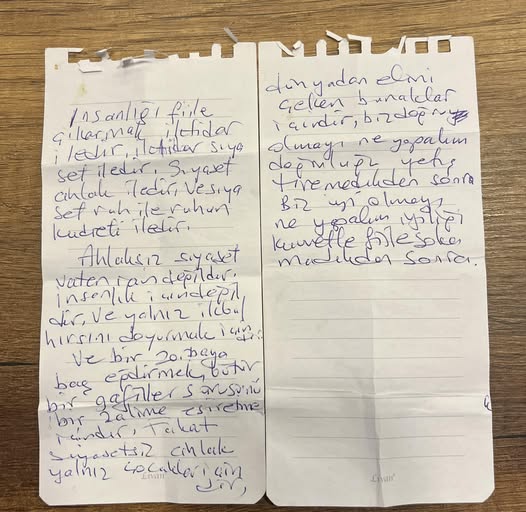 İnsanlığı fiile
çıkarmak iktidar
iledir, iktidar siya
set iledir, Siyaset
ahlak iledir, ve siya
set ruh ile ruhun
kudreti iledir.
Ahlaksız siyaset
vatan için değildir,
insanlık için değil
dir, ve yalnız ikbal
hırsını doyurmak için
dir
Ve bir zorbaya
baş eğdirmek, bütün
bir gafiller sürüsünü
bir zalime esir etme
içindir, Fakat
siyasetsiz ahlak
yalnız çocuklar için
dir,
Livan
dünyadan elini
çeken bunaklar
içindir, biz doğru
olmayı ne yapalım
doğruluğu yetiş
tiremedikden sonra
Biz iyi olmayı
ne yapalım iyiliği
kuvvetle fiile soka
madıkdan sonra.
Livan